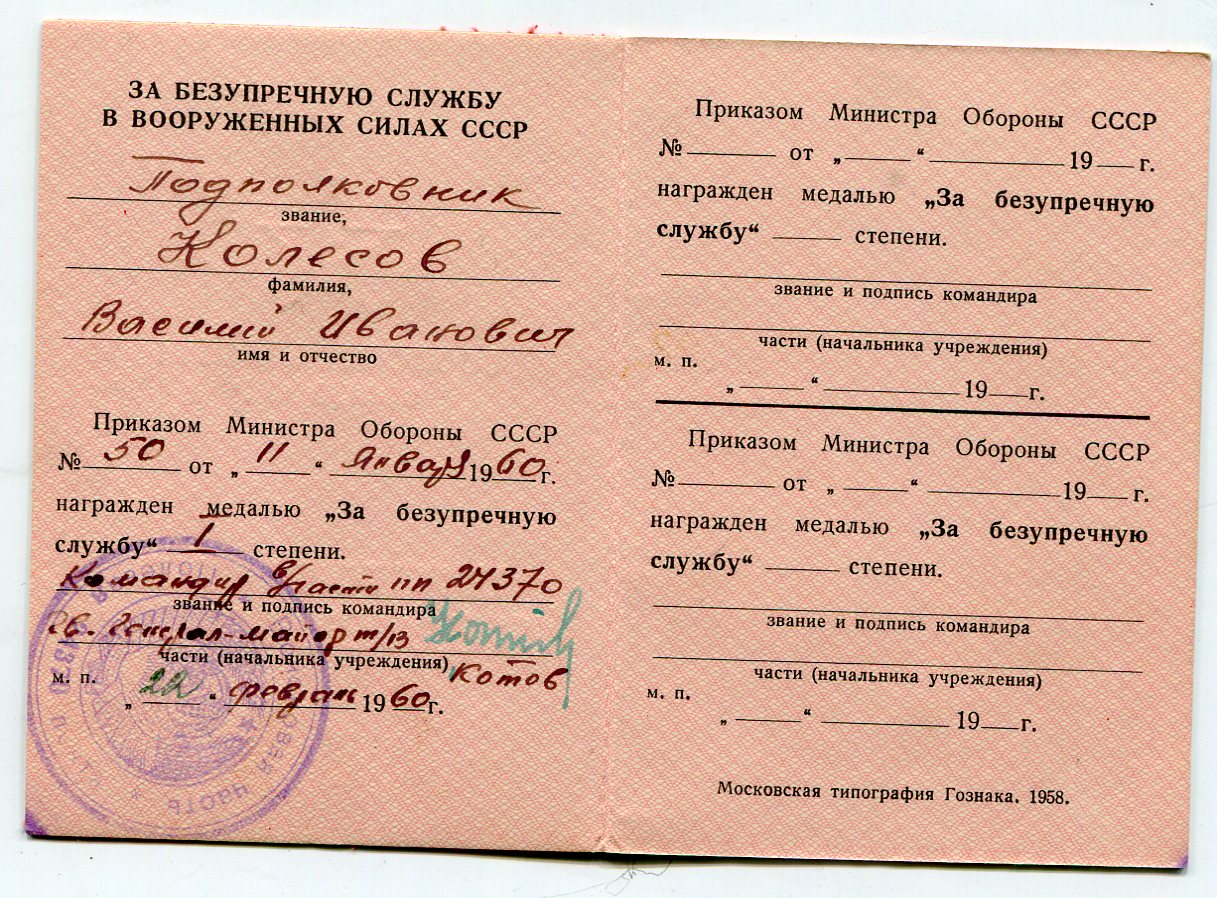 ЗА БЕЗУПРЕЧНУЮ СЛУЖБУ
В ВООРУЖЕННЫХ СИЛАХ СССР
Подполковник
звание,
Колесов
фамилия,
Василий Иванович
имя и отчество
Приказом Министра Обороны СССР
№ 50 от „ 11 “ января 19 60 г.
награжден медалью „За безупречную
службу“ I степени.
Командир в/части пп 24370
звание и подпись командира
Гв. Генерал-майор т/в
части (начальника учреждения)
Котов
м. п.
„ 22 “ февраль 19 60 г.
Приказом Министра Обороны СССР
№ от „ “ 19 г.
награжден медалью „За безупречную
службу“ степени.
звание и подпись командира
части (начальника учреждения)
м. п.
„ “ 19 г.
Приказом Министра Обороны СССР
№ от „ “ 19 г.
награжден медалью „За безупречную
службу“ степени.
звание и подпись командира
части (начальника учреждения)
м. п.
„ “ 19 г.
Московская типография Гознака. 1958.